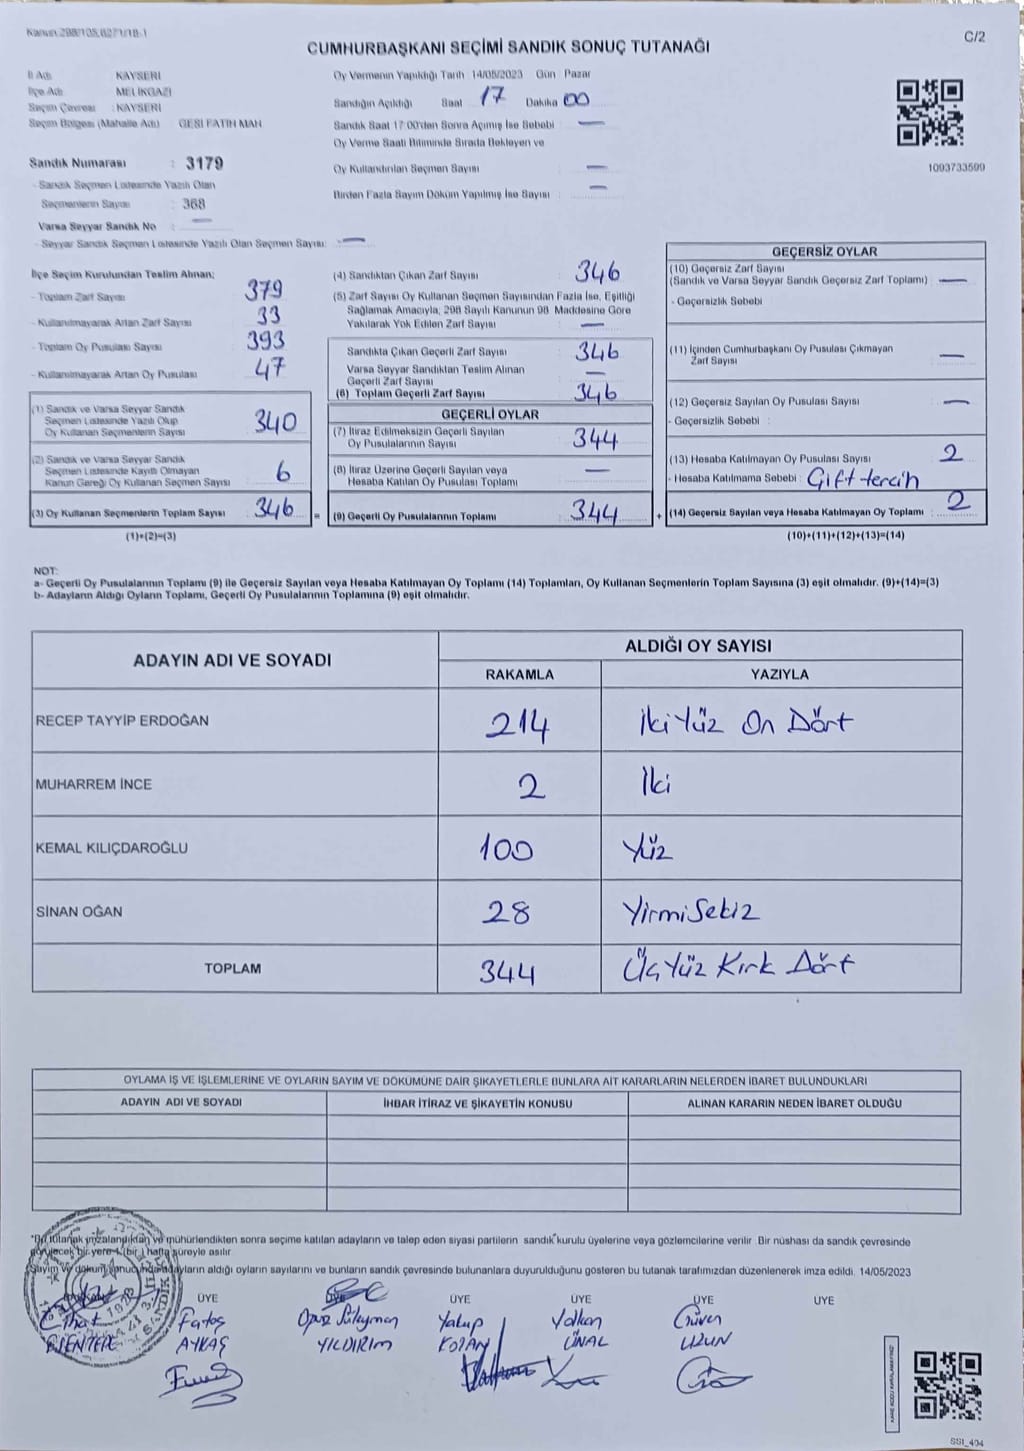 Kanun:298/105,6271/18-1
C/2
CUMHURBAŞKANI SEÇİMİ SANDIK SONUÇ TUTANAĞI
İl Adı : KAYSERİ
İlçe Adı : MELİKGAZİ
Seçim Çevresi : KAYSERİ
Seçim Bölgesi (Mahalle Adı) : GESİ FATİH MAH
Sandık Numarası : 3179
- Sandık Seçmen Listesinde Yazılı Olan
Seçmenlerin Sayısı : 368
Varsa Seyyar Sandık No : —
- Seyyar Sandık Seçmen Listesinde Yazılı Olan Seçmen Sayısı: —
Oy Vermenin Yapıldığı Tarih : 14/05/2023 Gün : Pazar
Sandığın Açıldığı Saat 17 Dakika 00
Sandık Saat 17:00'den Sonra Açımış İse Sebebi : —
Oy Verme Saati Bitiminde Sırada Bekleyen ve
Oy Kullandırılan Seçmen Sayısı : —
Birden Fazla Sayım Döküm Yapılmış İse Sayısı : —
1093733599
İlçe Seçim Kurulundan Teslim Alınan;
- Toplam Zarf Sayısı 379
- Kullanılmayarak Artan Zarf Sayısı 33
- Toplam Oy Pusulası Sayısı 393
- Kullanılmayarak Artan Oy Pusulası 47
(1) Sandık ve Varsa Seyyar Sandık
Seçmen Listesinde Yazılı Olup
Oy Kullanan Seçmenlerin Sayısı 340
(2) Sandık ve Varsa Seyyar Sandık
Seçmen Listesinde Kayıtlı Olmayan
Kanun Gereği Oy Kullanan Seçmen Sayısı 6
(3) Oy Kullanan Seçmenlerin Toplam Sayısı 346 =
(1)+(2)=(3)
(4) Sandıktan Çıkan Zarf Sayısı 346
(5) Zarf Sayısı Oy Kullanan Seçmen Sayısından Fazla İse, Eşitliği
Sağlamak Amacıyla; 298 Sayılı Kanunun 98 Maddesine Göre
Yakılarak Yok Edilen Zarf Sayısı —
Sandıkta Çıkan Geçerli Zarf Sayısı 346
Varsa Seyyar Sandıktan Teslim Alınan
Geçerli Zarf Sayısı —
(6) Toplam Geçerli Zarf Sayısı 346
GEÇERLİ OYLAR
(7) İtiraz Edilmeksizin Geçerli Sayılan
Oy Pusulalarının Sayısı 344
(8) İtiraz Üzerine Geçerli Sayılan veya
Hesaba Katılan Oy Pusulası Toplamı —
(9) Geçerli Oy Pusulalarının Toplamı 344 +
GEÇERSİZ OYLAR
(10) Geçersiz Zarf Sayısı
(Sandık ve Varsa Seyyar Sandık Geçersiz Zarf Toplamı) —
- Geçersizlik Sebebi :
(11) İçinden Cumhurbaşkanı Oy Pusulası Çıkmayan
Zarf Sayısı —
(12) Geçersiz Sayılan Oy Pusulası Sayısı —
- Geçersizlik Sebebi :
(13) Hesaba Katılmayan Oy Pusulası Sayısı 2
- Hesaba Katılmama Sebebi : Çift tercih
(14) Geçersiz Sayılan veya Hesaba Katılmayan Oy Toplamı : 2
(10)+(11)+(12)+(13)=(14)
NOT:
a- Geçerli Oy Pusulalarının Toplamı (9) ile Geçersiz Sayılan veya Hesaba Katılmayan Oy Toplamı (14) Toplamları, Oy Kullanan Seçmenlerin Toplam Sayısına (3) eşit olmalıdır. (9)+(14)=(3)
b- Adayların Aldığı Oyların Toplamı, Geçerli Oy Pusulalarının Toplamına (9) eşit olmalıdır.
ADAYIN ADI VE SOYADI
ALDIĞI OY SAYISI
RAKAMLA YAZIYLA
RECEP TAYYİP ERDOĞAN 214 İki Yüz On Dört
MUHARREM İNCE 2 İki
KEMAL KILIÇDAROĞLU 100 Yüz
SİNAN OĞAN 28 Yirmi Sekiz
TOPLAM 344 Üç Yüz Kırk Dört
OYLAMA İŞ VE İŞLEMLERİNE VE OYLARIN SAYIM VE DÖKÜMÜNE DAİR ŞİKAYETLERLE BUNLARA AİT KARARLARIN NELERDEN İBARET BULUNDUKLARI
ADAYIN ADI VE SOYADI İHBAR İTİRAZ VE ŞİKAYETİN KONUSU ALINAN KARARIN NEDEN İBARET OLDUĞU
*Bu tutanak imzalandıktan ve mühürlendikten sonra seçime katılan adayların ve talep eden siyasi partilerin sandık kurulu üyelerine veya gözlemcilerine verilir. Bir nüshası da sandık çevresinde
görülecek bir yere 1 (bir ) hafta süreyle asılır
Sayım ve döküm sonucunda adayların aldığı oyların sayılarını ve bunların sandık çevresinde bulunanlara duyurulduğunu gösteren bu tutanak tarafımızdan düzenlenerek imza edildi. 14/05/2023
ÜYE ÜYE ÜYE ÜYE ÜYE ÜYE
Fatoş Süleyman Yakup Volkan Güven
AYKAŞ YILDIRIM ÜNAL UZUN
KARE KODU KARALAMAYINIZ!
SSI_404